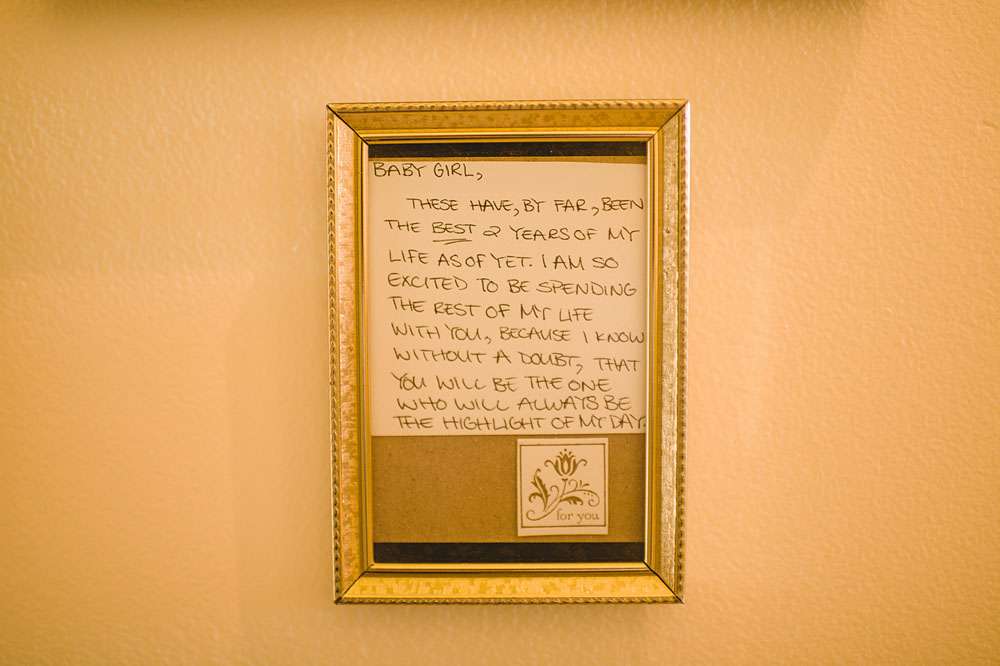 BABY GIRL,
THESE HAVE, BY FAR, BEEN
THE BEST 2 YEARS OF MY
LIFE AS OF YET. I AM SO
EXCITED TO BE SPENDING
THE REST OF MY LIFE
WITH YOU, BECAUSE I KNOW
WITHOUT A DOUBT, THAT
YOU WILL BE THE ONE
WHO WILL ALWAYS BE
THE HIGHLIGHT OF MY DAY.
for you